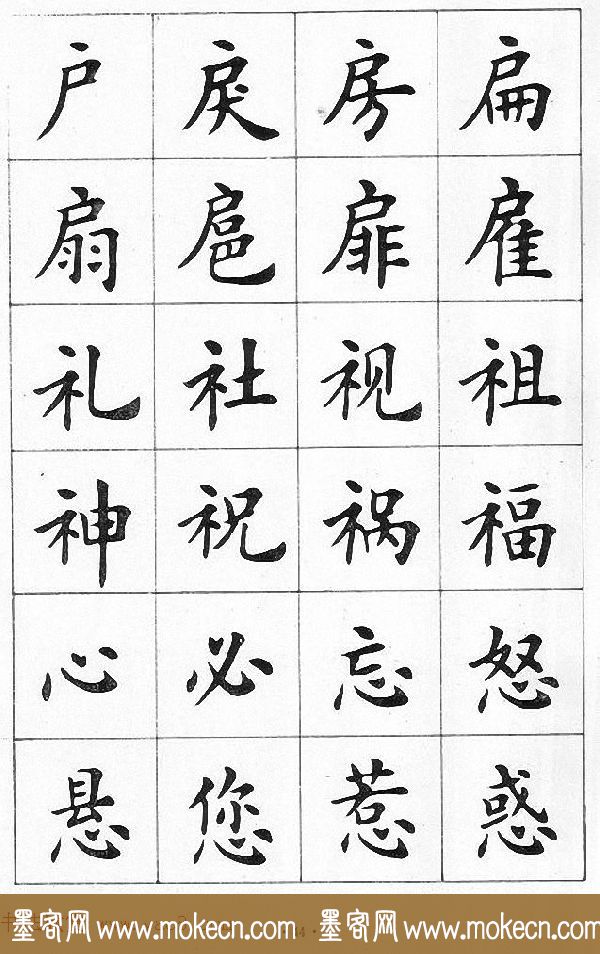 户戾房扁
扇扈扉雇
礼社视祖
神祝祸福
心必忘怒
悬您惹惑
墨客网 www.mokecn.com 墨客网 www.mokecn.com